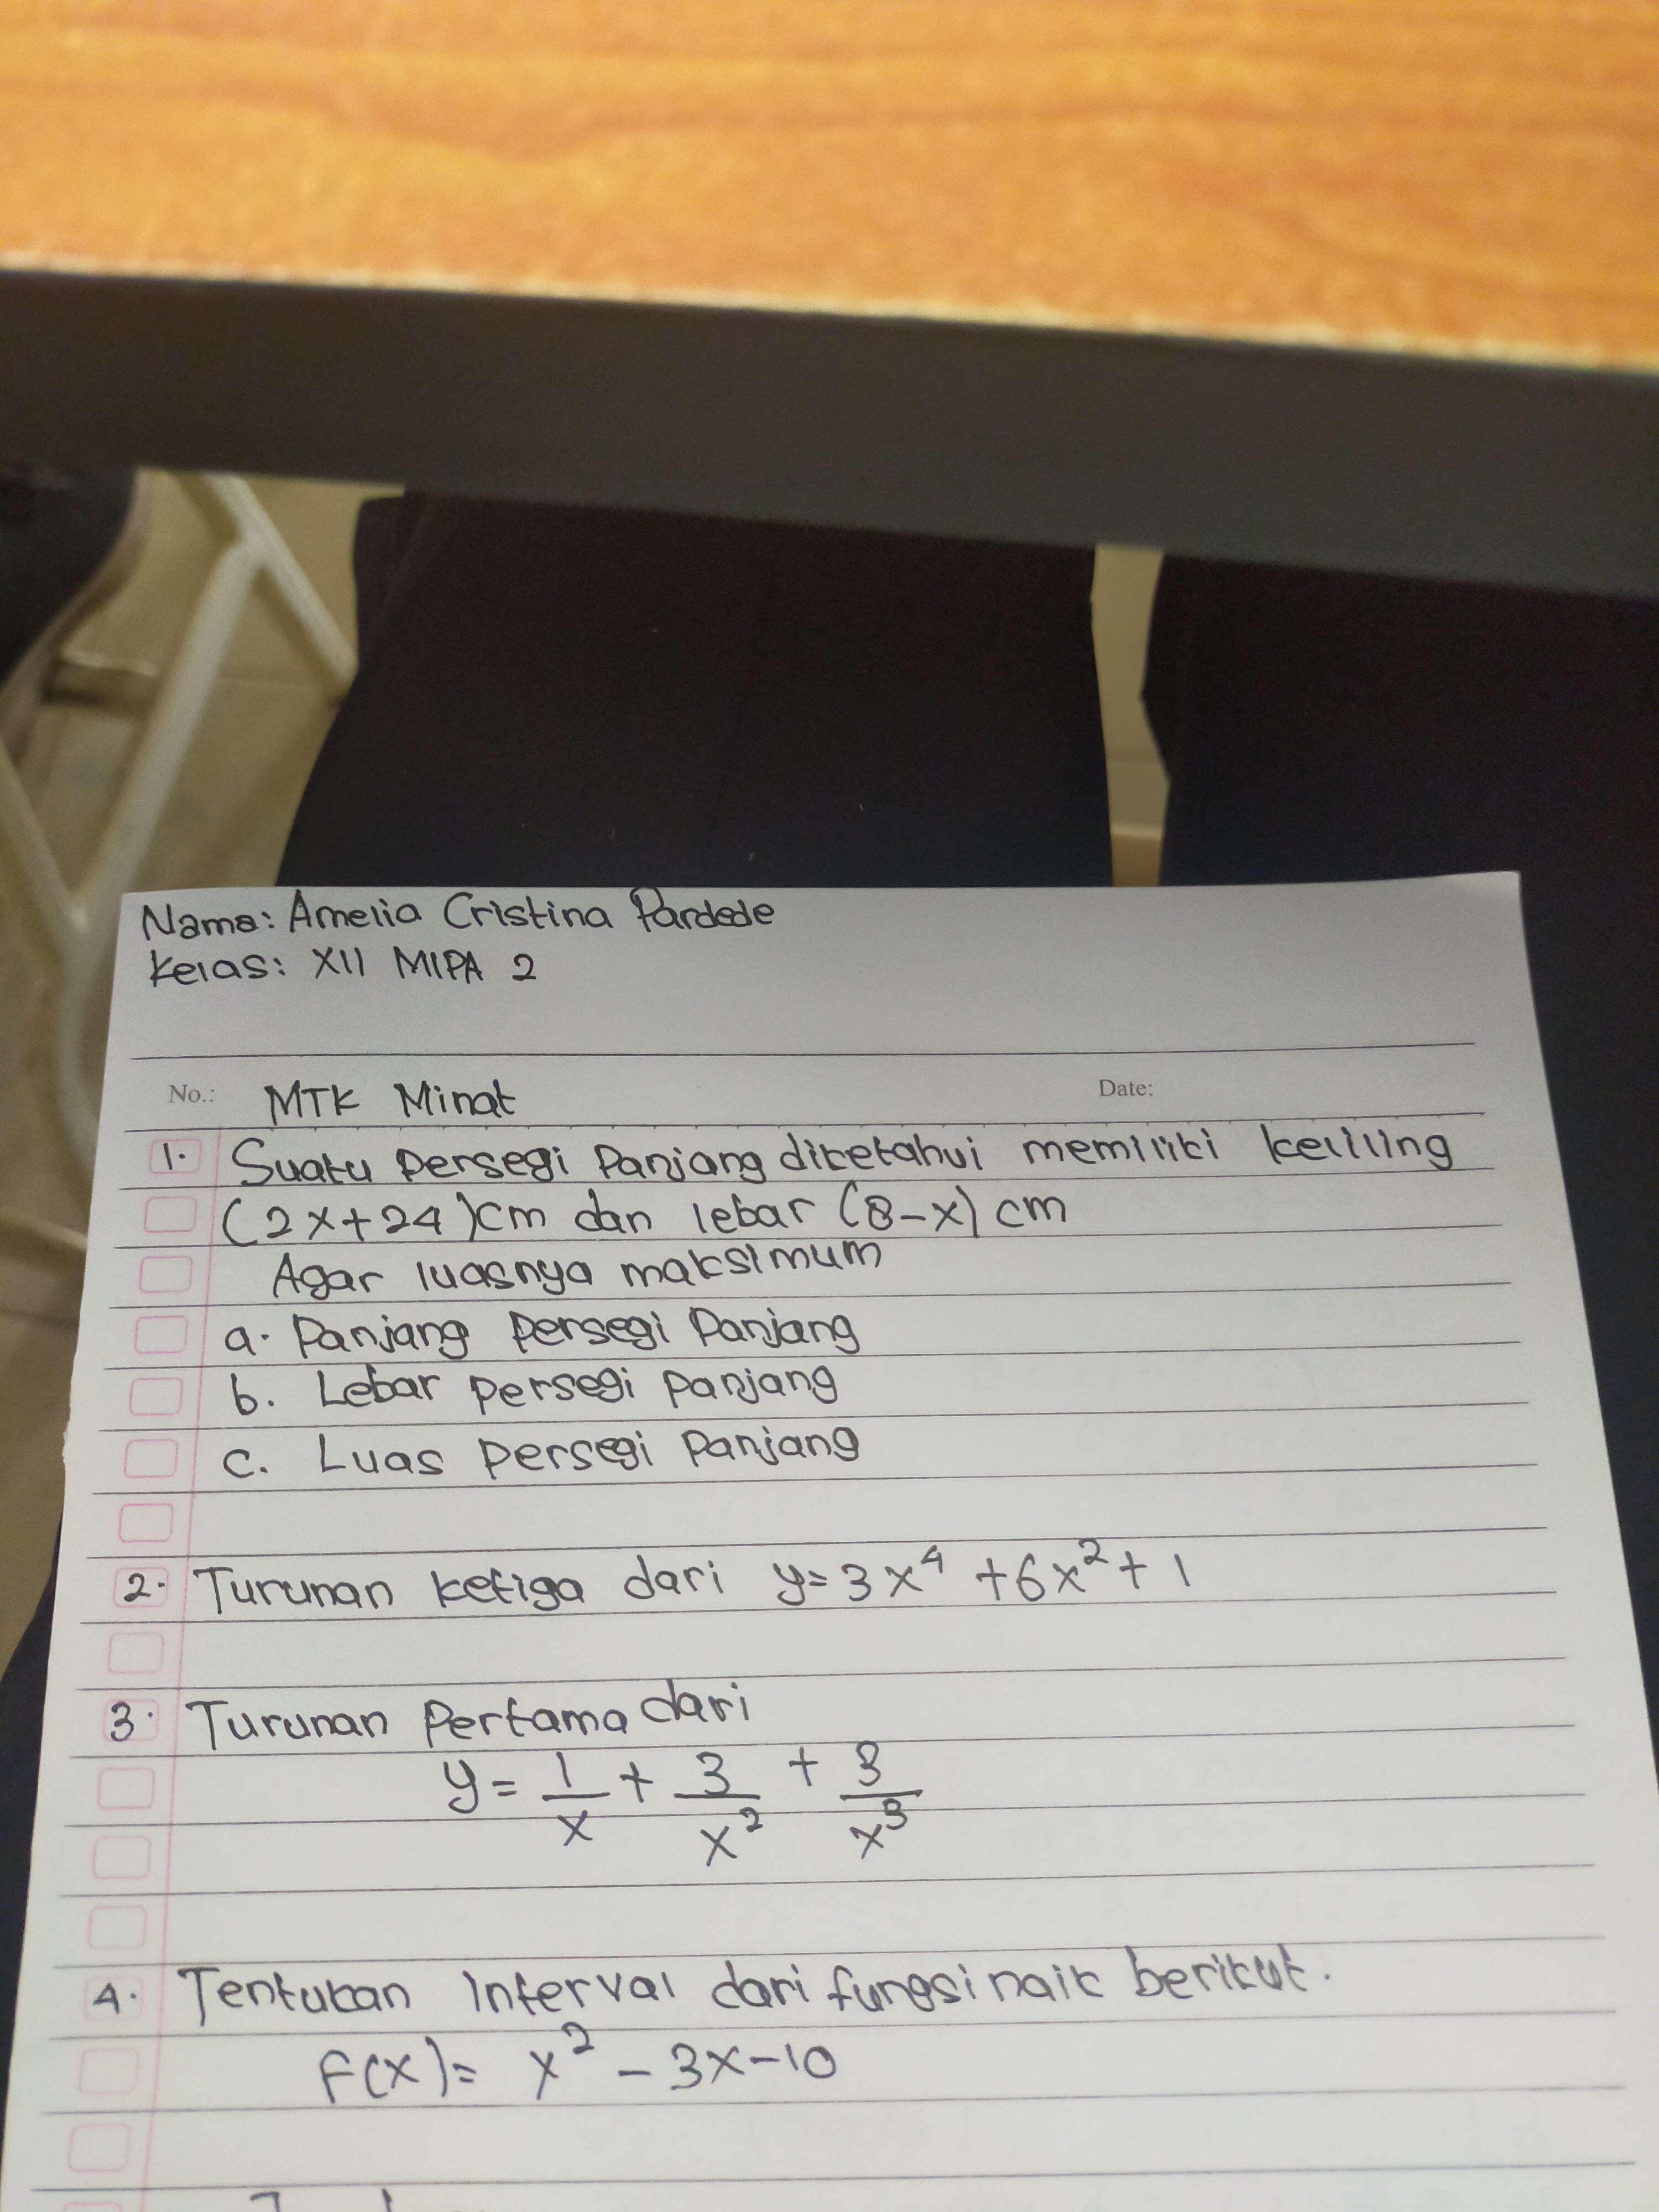 Nama: Amelia Cristina Pardede
Kelas: XII MIPA 2
No.: MTK Minat Date:
1. Suatu persegi Panjang diketahui memiliki keliling
(2x+24)cm dan lebar (8-x) cm
Agar luasnya maksimum
a. Panjang persegi Panjang
b. Lebar persegi panjang
c. Luas persegi Panjang
2. Turunan ketiga dari y=3x⁴ +6x²+ 1
3. Turunan Pertama dari
y= 1/x + 3/x² + 3/x³
4. Tentukan Interval dari fungsi naik berikut.
F(x)= x² - 3x-10